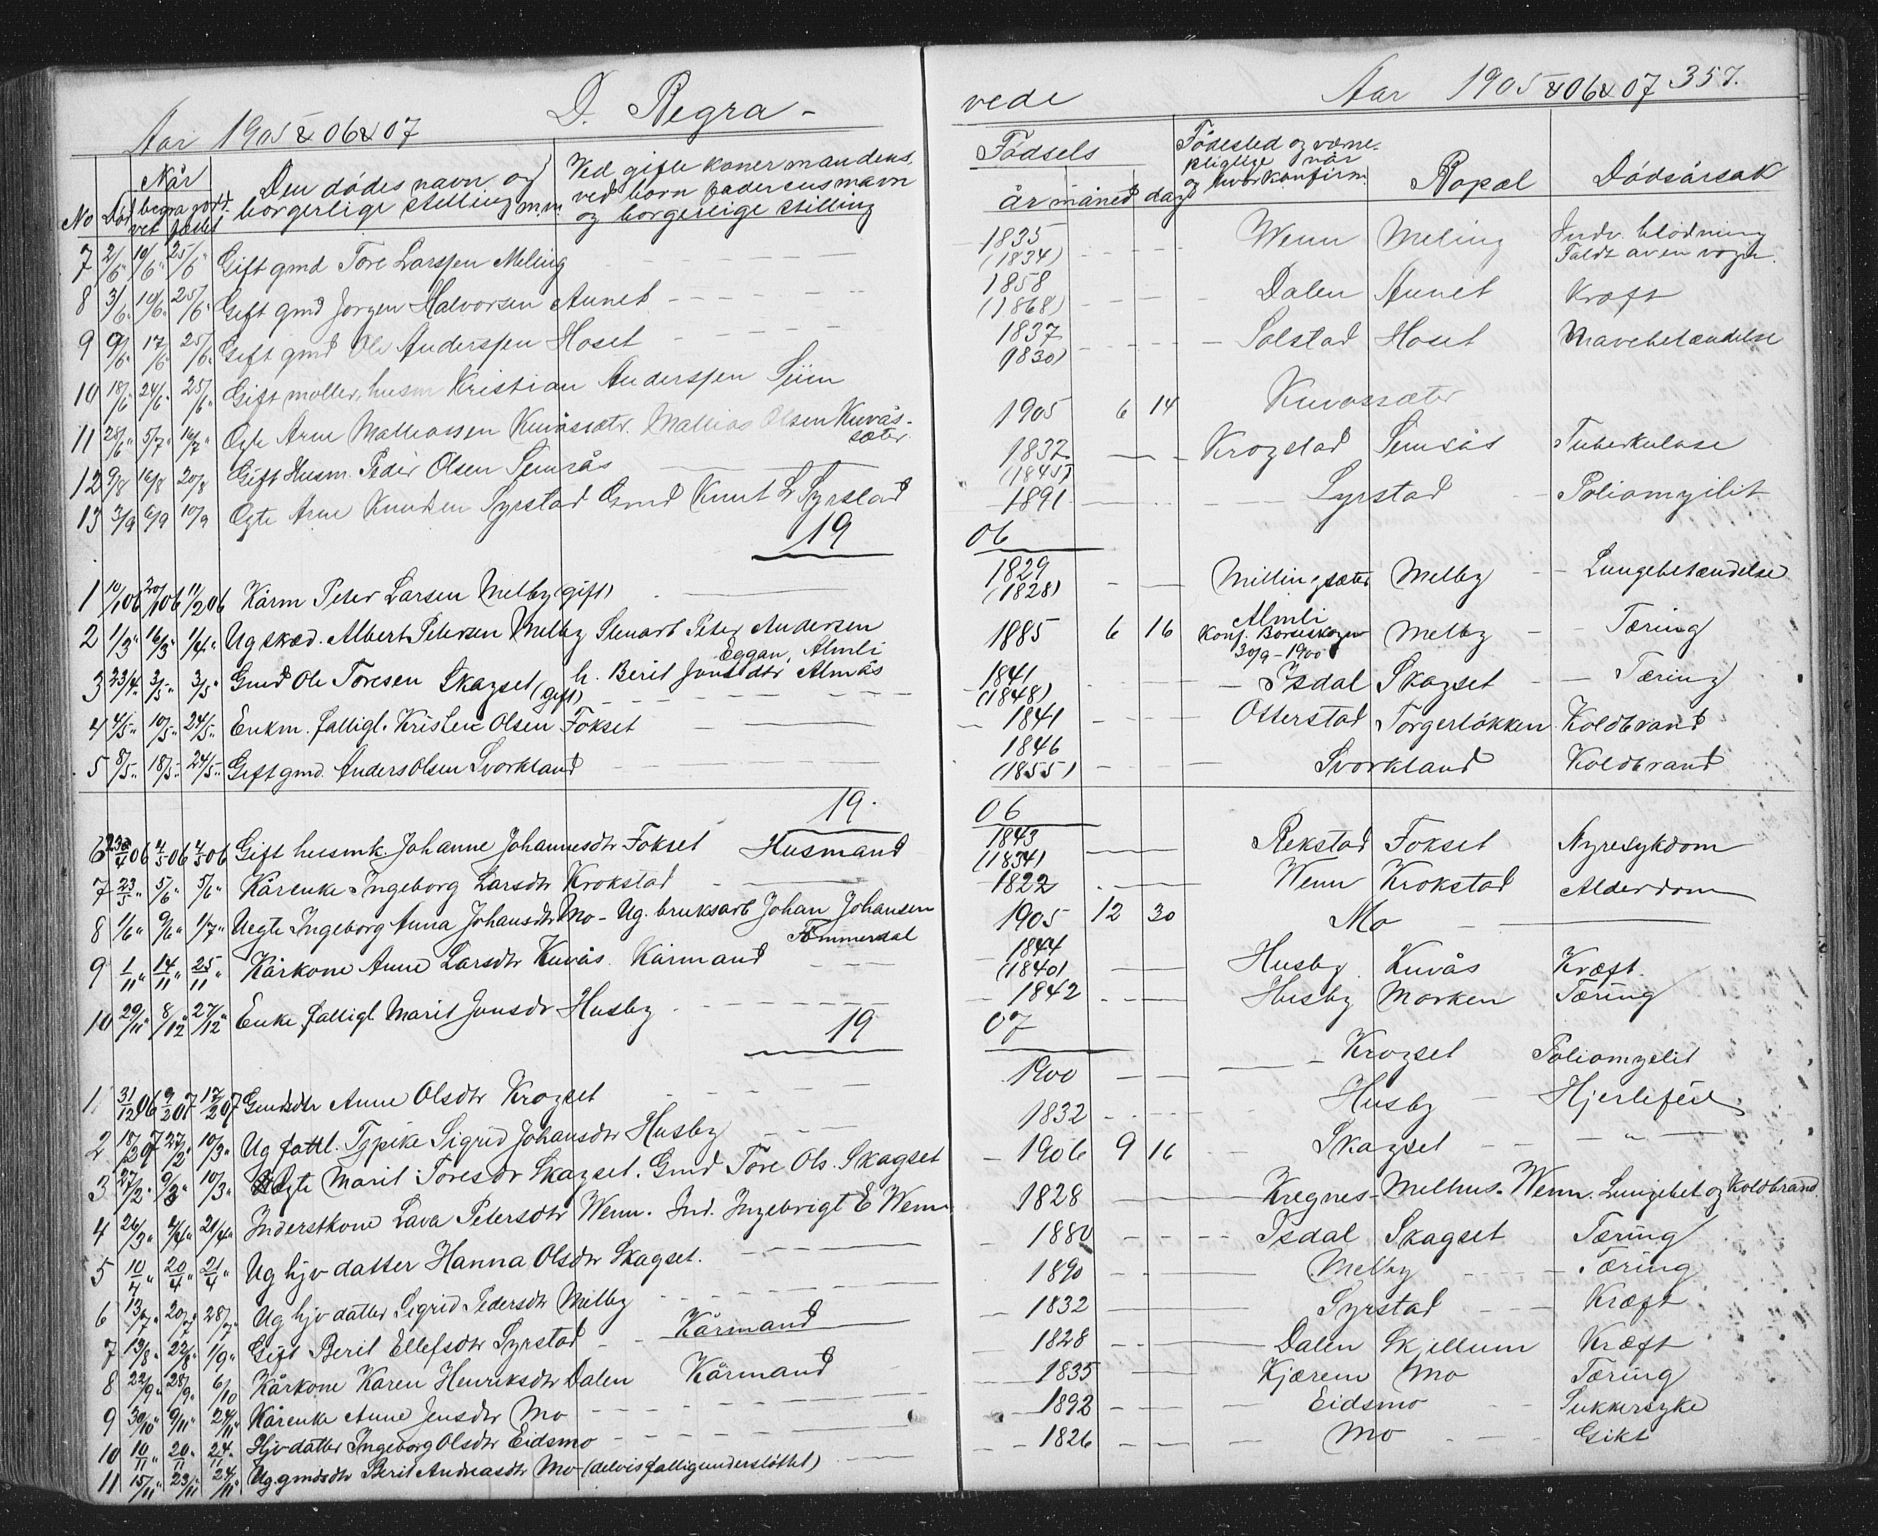 Aar 1905 & 06 & 07 D. Begra-
vede Aar 1905 & 06 & 07 357.
No Død Når begravet jordfestet Den dødes navn og borgerlige stilling m.m. Ved gifte koner mandens, ved born faderens navn og borgerlige stilling
Fødsels år måned dag Fødested og værnepligtige når og hvor konfirm. Bopæl Dødsårsak
7 2/6 10/6 25/6 Gift gmd Tore Larssen Meling 1835 (1834) Wenn Meling Indv. blødning Faldt av en vogn.
8 3/6 10/6 25/6 Gift gmd Jørgen Halvorsen Aunet 1858 (1868) Dalen Aunet Kræft
9 9/6 17/6 25/6 Gift gmd Ole Anderssen Hoset 1837 (1830) Solstad Hoset Mavebetændelse
10 18/6 24/6 25/6 Gift møller, husm Kristian Anderssen Seim
11 25/6 5/7 16/7 Ogte Arne Mathiassen Kuvåssæter. Mathias Olsen Kuvås-sæter 1905 6 14 Kuvåssæter
12 9/8 16/8 20/8 Gift Husm. Peder Olsen Semsås 1832 (1845) Krogstad Semsås Tuberkulose
13 2/9 6/9 10/9 Ogte Arne Knutsen Syrstad Gmd Knut L Syrstad 1891 Syrstad Poliomyilit
19 06
1 10/1 06 20/1 06 11/2 06 Kårm Peter Larsen Melby (gift) 1829 (1828) Millingsæter Melby Lungebetændelse
2 1/3 16/3 1/4 Ug skræd. Albert Petersen Melby Stenarb Peter Andersen Eggan, Almli 1885 6 16 Almli Konf. Børseskogn 30/9-1900 Melby Tæring
3 23/4 3/5 3/5 Gmd Ole Toresen Skagset (gift) h. Berit Jonsdtr Almås 1841 (1848) Isdal Skagset Tæring
4 4/5 10/5 24/5 Enkm. fattigl. Kristen Olsen Fokset 1841 Otterstad Torgerløkken Koldbrand
5 8/5 18/5 24/5 Gift gmd. Anders Olsen Svorkland 1846 (1855) Svorkland Koldbrand
19. 06
6 23/4 06 4/5 06 4/5 06 Gift husmk. Johanne Johannesdtr Fokset Husmand 1843 (1834) Rekstad Fokset Nyresykdom
7 23/5 5/6 5/6 Kårenke Ingeborg Larsdtr Krokstad 1822 Wenn Krokstad Alderdom
8 1/6 9/6 1/7 Uegte Ingeborg Anna Johansdtr Mo - Ug. bruksarb Johan Johansen Tømmerdal 1905 12 30 Mo
9 1/11 14/11 25/11 Kårkone Anne Larsdtr Kuvås. Kårmand 1844 (1840) Husby Kuvås Kræft.
10 29/11 8/12 27/12 Enke fattigl Marit Jonsdr Husby 1842 Husby Morken Tæring
19 07
1 31/12 06 9/2 07 17/2 07 Gmdsdtr Anne Olsdtr Krogset 1900 Krogset Poliomyelit
2 18/2 07 27/2 10/3 Ug fattl. Typike Sigrid Johansdtr Husby 1832 Husby Hjertefeil
3 27/2 9/3 10/3 Ægte Marit Toresdr Skagset. Gmd Tore Ols. Skagset 1906 9 16 Skagset "
4 26/3 4/4 21/4 Inderstkone Lava Petersdtr Wenn. Ind. Ingebrigt E Wenn 1828 Kregnes-Melhus. Wenn. Lungebet og Koldbrand
5 10/4 20/4 21/4 Ug hjv datter Hanna Olsdtr Skagset. 1880 Isdal Skagset Tæring
6 13/7 20/7 28/7 Ug hjv datter Sigrid Pedersdtr Melby 1890 Melby Tæring
7 13/8 22/8 1/9 Gift Berit Ellefsdtr Syrstad Kårmand 1832 Syrstad Kræft
8 22/9 28/9 6/10 Kårkone Karen Henriksdtr Dalen Kårmand 1828 Dalen Skjellum Kræft
9 30/10 9/11 24/11 Kårenke Anne Jensdtr Mo 1835 Kjærem Mo Tæring
10 10/11 20/11 24/11 Hjv datter Ingeborg Olsdtr Eidsmo 1892 Eidsmo Sukkersyke
11 15/11 23/11 24/11 Ug gmdsdtr Berit Andreasdtr Mo (delvis fattigunderstøttet) 1826 Mo Gikt